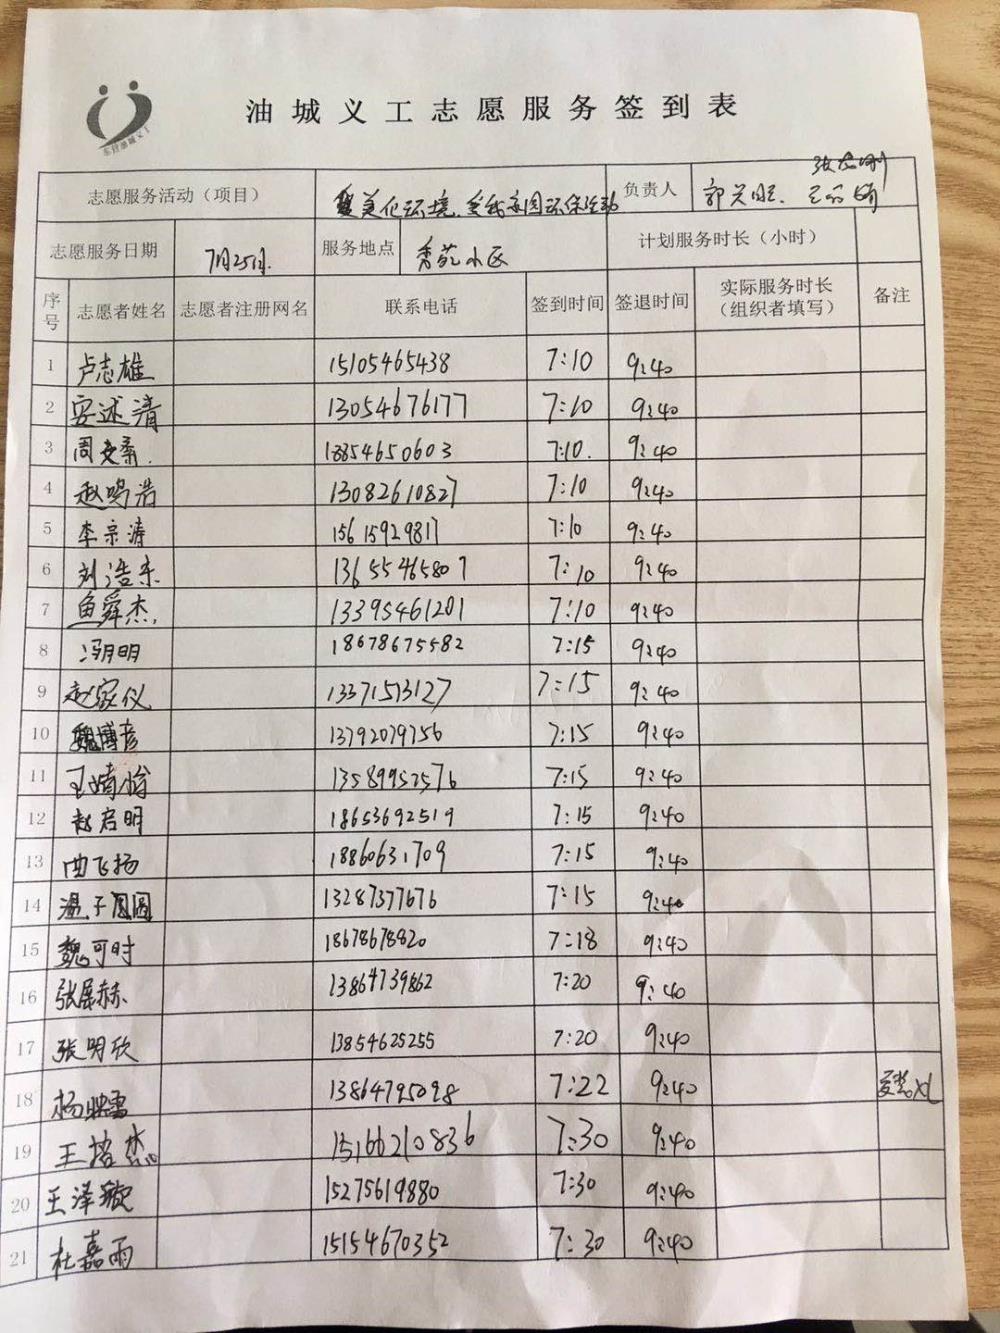 东营油城义工
油城义工志愿服务签到表
志愿服务活动（项目） 美化环境、爱我家园环保活动 负责人 郭兴旺、
志愿服务日期 7月25日. 服务地点 秀苑小区 计划服务时长（小时）
序号 志愿者姓名 志愿者注册网名 联系电话 签到时间 签退时间 实际服务时长（组织者填写） 备注
1 卢志雄 15105465438 7:10 9:40
2 安述清 13054676177 7:10 9:40
3 周 18854650603 7:10. 9:40
4 赵鸣浩 13082610827 7:10 9:40
5 李宗涛 15615929817 7:10 9:40
6 刘浩东 13655465807 7:10 9:40
7 鱼舜杰. 13395461201 7:10 9:40
8 冯明明 18678675582 7:15 9:40
9 赵家仪 13371513127 7:15 9:40
10 魏博彦 13792079756 7:15 9:40
11 王 13589952576 7:15 9:40
12 赵启明 18653692519 7:15 9:40
13 曲飞扬 18860631709 7:15 9:40
14 温子圆圆 13287377676 7:15 9:40
15 魏可时 18678678820 7:18 9:40
16 张 赫 13864739862 7:20 9:40
17 张明欣 13854625255 7:20 9:40
18 杨 13864795098 7:22 9:40
19 王 15166210836 7:30 9:40
20 王泽璇 15275619880 7:30 9:40
21 杜嘉雨 15154670352 7:30 9:40